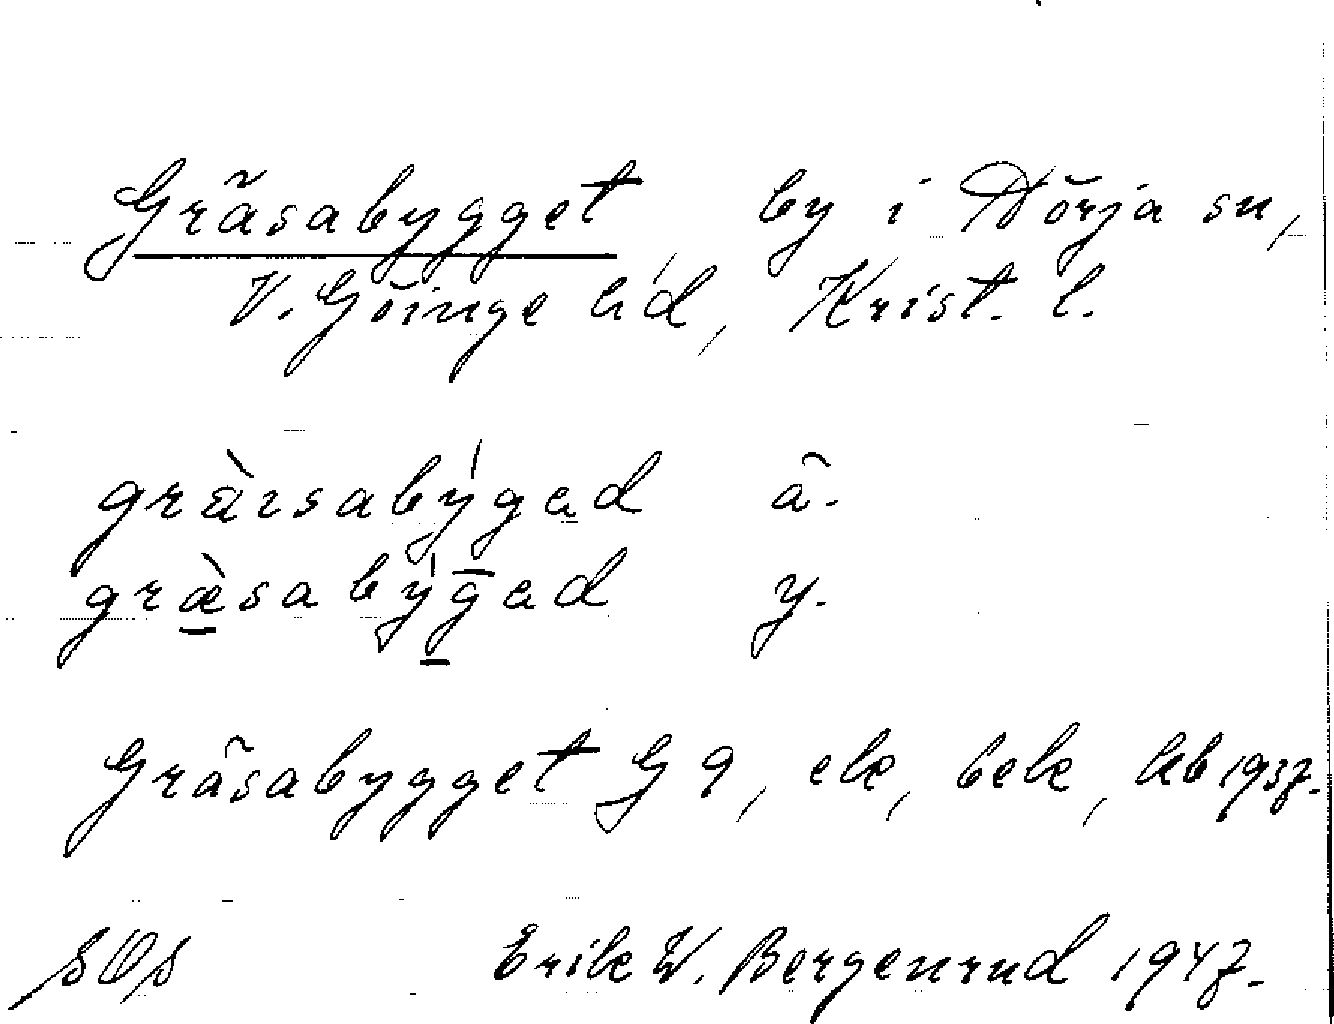 Gräsabygget, by i Dörja sn,
V. Göinge hd, Krist. l.
gràɪsabýgad ä.
græ̀sabýgad y.
Gräsabygget G 9, ek, bek, kb 1937.
Erik W. Bergenrud 1947.